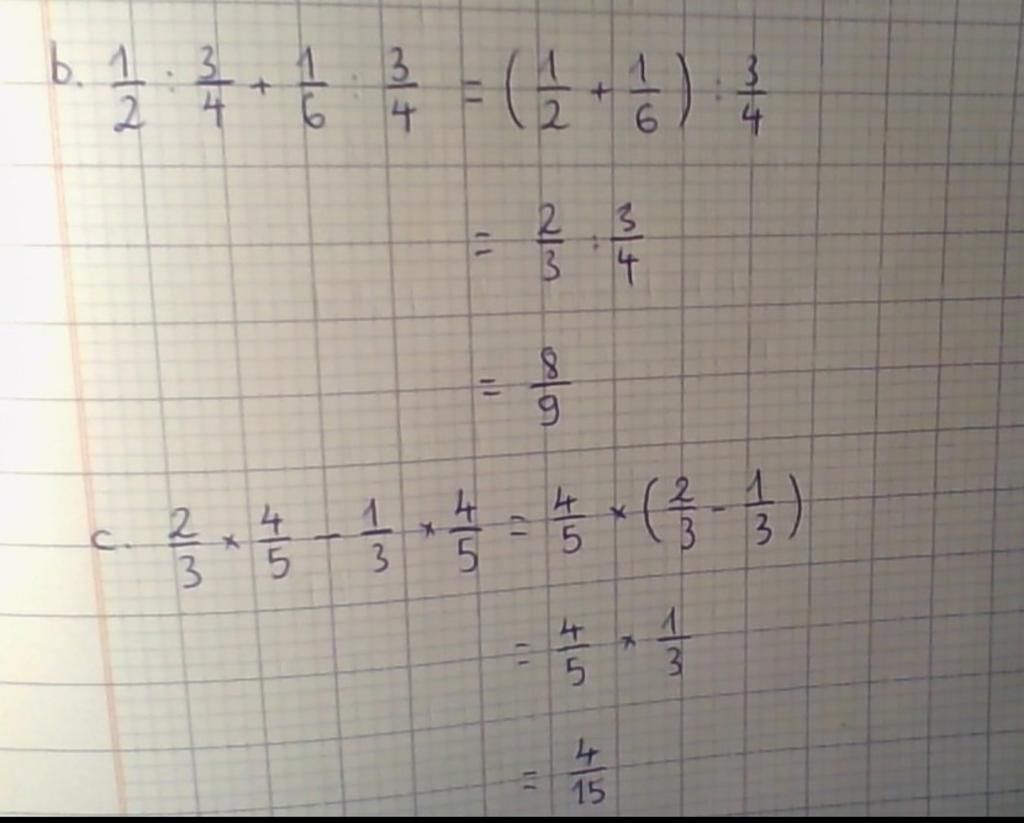 b. 1/2 : 3/4 + 1/6 : 3/4 = (1/2 + 1/6) : 3/4
= 2/3 : 3/4
= 8/9
c. 2/3 × 4/5 − 1/3 × 4/5 = 4/5 × (2/3 − 1/3)
= 4/5 × 1/3
= 4/15